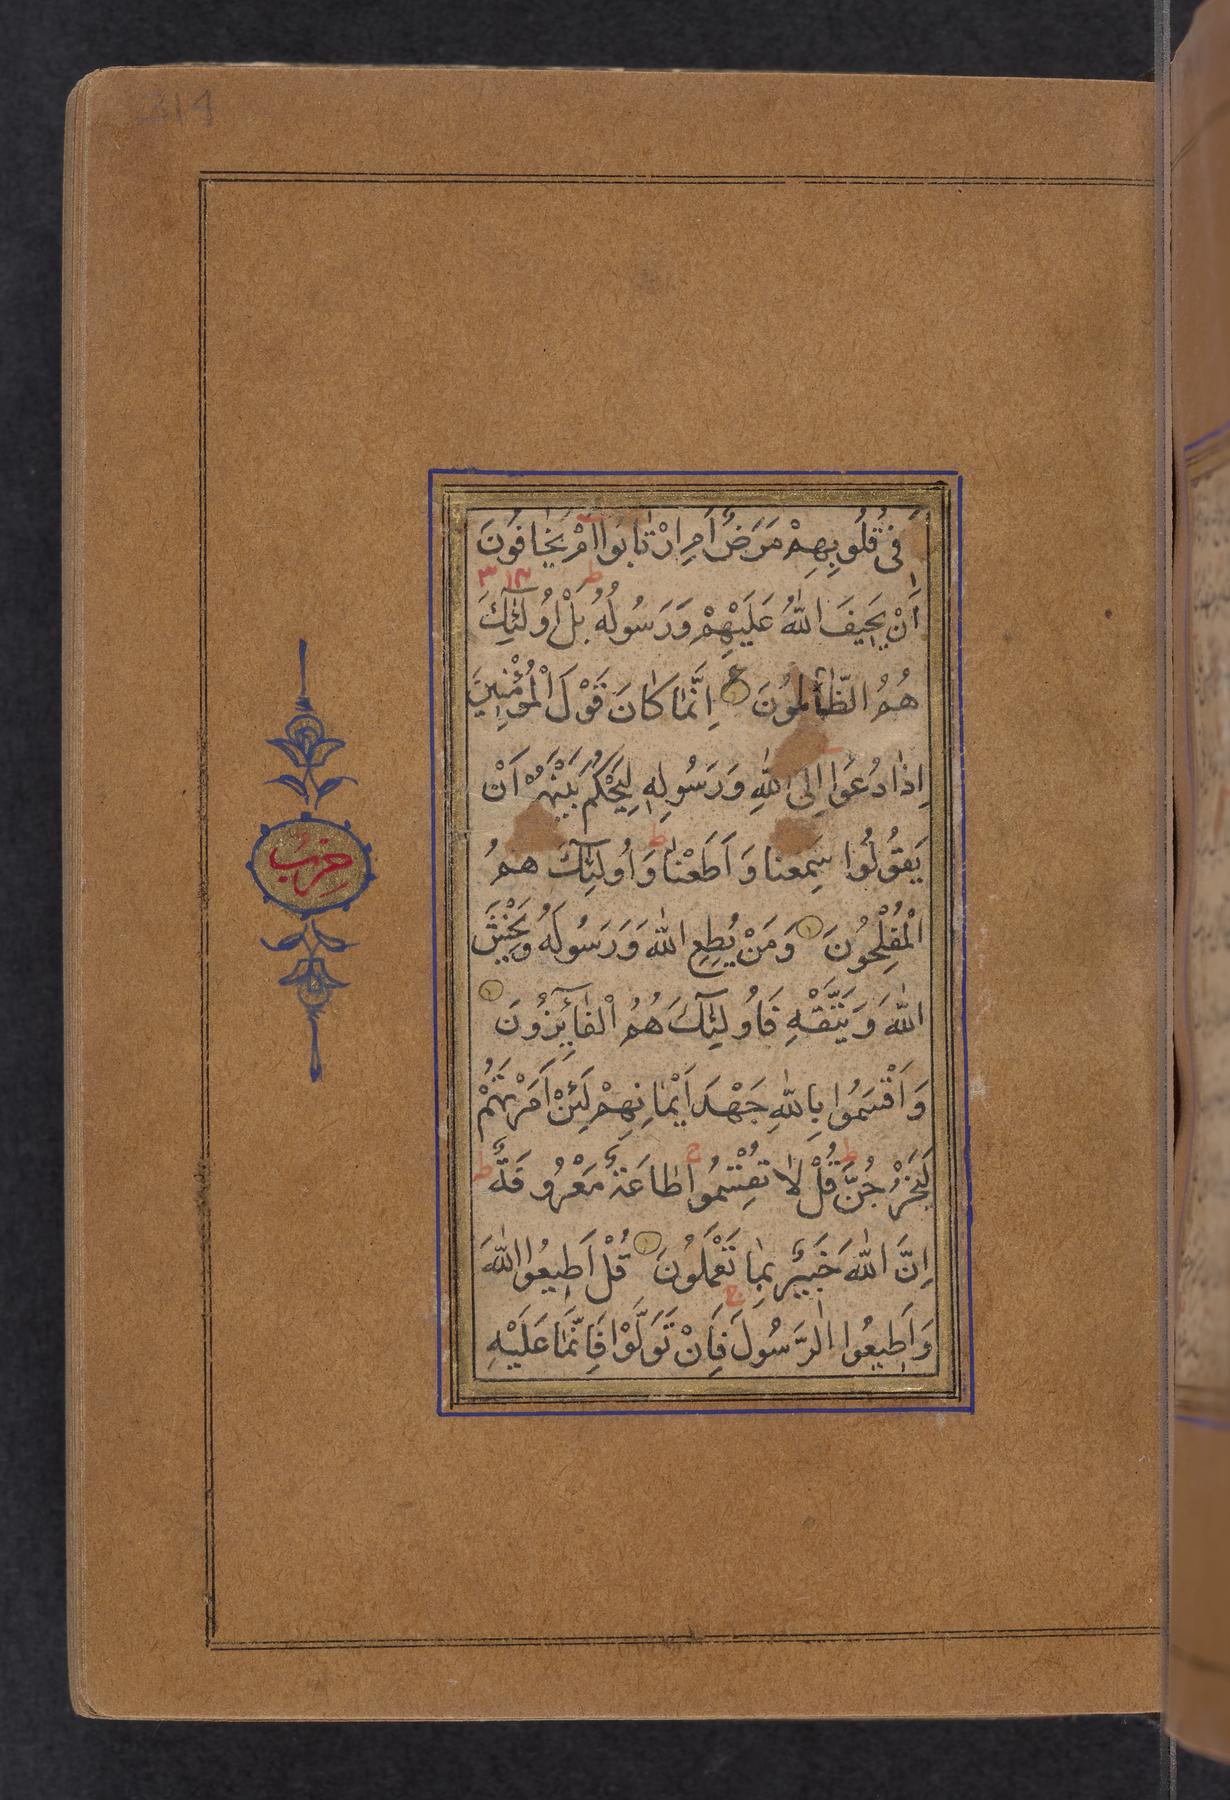 314
اَفِى قُلُوبِهِمْ مَرَضٌ اَمِ ارْتٰابَوا اَمْ يَخٰافُونَ
٣ ١٣
اَنْ يَحِيفَ اللّٰهُ عَلَيْهِمْ وَرَسُولُهُ ط بَلْ اُولٰٓئِكَ
هُمُ الظّٰالِمُونَ اِنَّمٰا كٰانَ قَوْلَ الْمُؤْمِنِينَ
اِذٰا دُعَوا اِلَى اللّٰهِ وَرَسُولِهِ لِيَحْكُمَ بَيْنَهُمْ اَنْ
يَقُولُوا سَمِعنا وَاَطَعْنٰا ط وَاُولٰٓئِكَ همُ
حزب
الْمُفْلِحُونَ وَمَنْ يُطِعِ اللّٰهَ وَرَسُولَهُ وَيَخْشَ
اللّٰهَ وَيَتَّقْهِ فَاُولٰٓئِكَ هُمُ الْفٰٓائِزُونَ
وَاَقْسَمُوا بِاللّٰهِ جَهْدَ اَيْمٰانِهِمْ لَئِنْ اَمَرْتَهُمْ
لَيَخْرُجُنَّ ط قُلْ لاٰ تُقْسِمُوا ج طٰاعَةٌ مَعْرُوفَةٌ ط
اِنَّ اللّٰهَ خَبِيرٌ بِمٰا تَعْمَلُونَ قُلْ اَطِيعُوا اللّٰهَ
وَاَطِيعُوا الرَّسُولَ ج فَاِنْ تَوَلَّوْا فَاِنَّمٰا عَلَيْهِ